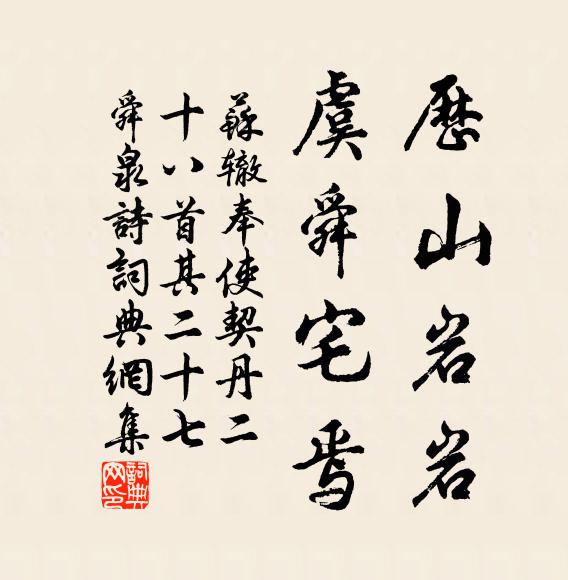 歷山岩岩
虞舜宅焉
蘇轍奉使契丹二
十八首其二十七
舜泉詩詞典網集
詞典網印